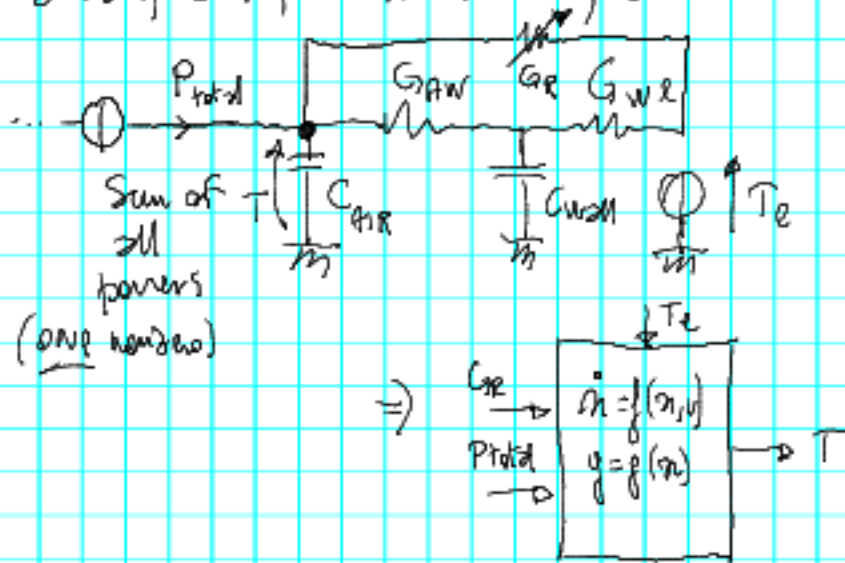 P total
G AW
G R
G we
Sum of
all
powers
(one nonzero)
T
C AIR
C wall
Te
Te
=>
GR
Ptotal
ẋ = f(x,u)
y = g(x)
T